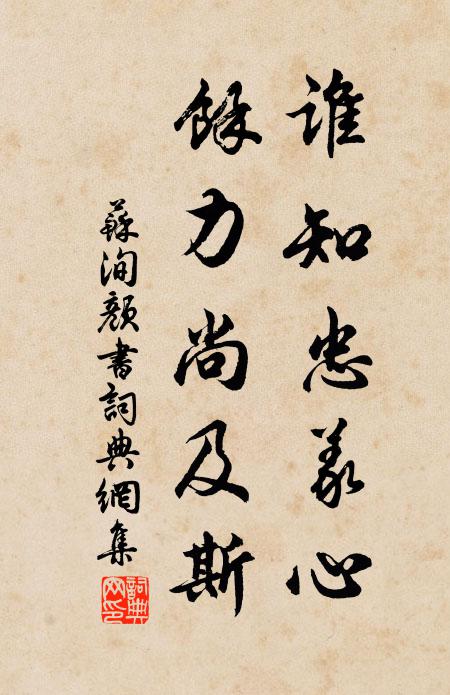 誰知忠義心
餘力尚及斯
蘇洵顏書詞典網集
詞典网印